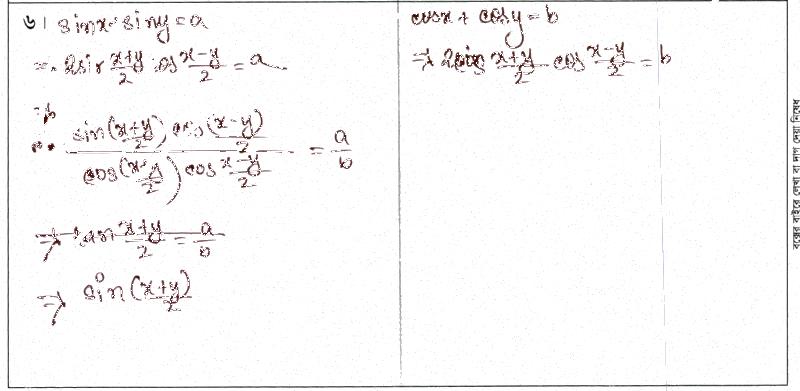 ৬। sinx + siny = a
⇒ 2sin (x+y)/2 cos (x-y)/2 = a
∴ sin((x+y)/2) cos((x-y)/2) / cos((x+y)/2) cos (x-y)/2 = a/b
⇒ tan (x+y)/2 = a/b
⇒ sin((x+y)/2)
cosx + cosy = b
⇒ 2cos (x+y)/2 cos (x-y)/2 = b
বক্সের বাইরে লেখা বা দাগ দেয়া নিষেধ